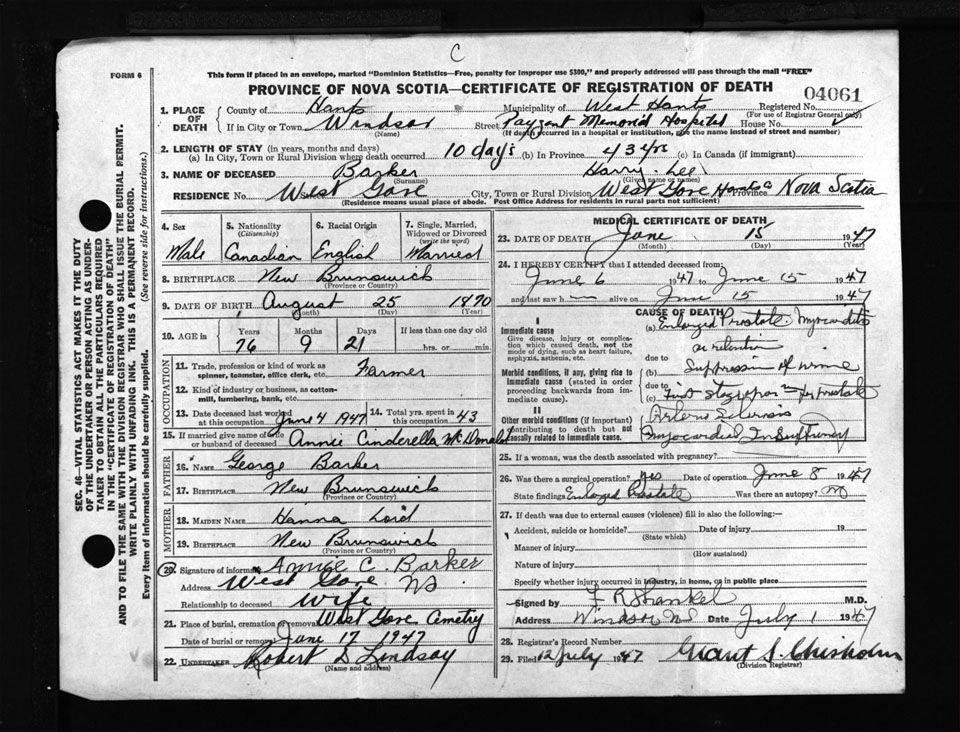 C
FORM 6
This form if placed in an envelope, marked "Dominion Statistics—Free, penalty for improper use $300," and properly addressed will pass through the mail "FREE"
PROVINCE OF NOVA SCOTIA—CERTIFICATE OF REGISTRATION OF DEATH
04061
SEC. 46—VITAL STATISTICS ACT MAKES IT THE DUTY
OF THE UNDERTAKER OR PERSON ACTING AS UNDER-
TAKER TO OBTAIN ALL THE PARTICULARS REQUIRED
IN THE "CERTIFICATE OF REGISTRATION OF DEATH"
AND TO FILE THE SAME WITH THE DIVISION REGISTRAR WHO SHALL ISSUE THE BURIAL PERMIT.
WRITE PLAINLY WITH UNFADING INK. THIS IS A PERMANENT RECORD.
Every item of information should be carefully supplied. (See reverse side for instructions.)
1. PLACE OF DEATH
County of Hants Municipality of West Hants Registered No.
(For use of Registrar General only)
If in City or Town Windsor Street Payzant Memorial Hospital House No.
(Name) (If death occurred in a hospital or institution, give the name instead of street and number)
2. LENGTH OF STAY (in years, months and days)
(a) In City, Town or Rural Division where death occurred 10 days (b) In Province 43 yrs (c) In Canada (if immigrant)
3. NAME OF DECEASED Barker Harry Lee
(Surname) (Given name or names)
RESIDENCE No. Street West Gore City, Town or Rural Division West Gore Hants Co Province Nova Scotia
(Residence means usual place of abode. Post Office Address for residents in rural parts not sufficient)
4. Sex
Male
5. Nationality
(Citizenship)
Canadian
6. Racial Origin
English
7. Single, Married,
Widowed or Divorced
(write the word)
Married
8. BIRTHPLACE New Brunswick
(Province or Country)
9. DATE OF BIRTH August 25 1870
(Month) (Day) (Year)
10. AGE in Years Months Days If less than one day old
76 9 21 hrs. or min.
OCCUPATION
11. Trade, profession or kind of work as
spinner, teamster, office clerk, etc. Farmer
12. Kind of industry or business, as cotton-
mill, lumbering, bank, etc.
13. Date deceased last worked
at this occupation June 4 1947
14. Total yrs. spent in
this occupation 43
15. If married give name of wife
or husband of deceased Annie Cinderella McDonald
FATHER
16. NAME George Barker
17. BIRTHPLACE New Brunswick
(Province or Country)
MOTHER
18. MAIDEN NAME Hanna Lord
19. BIRTHPLACE New Brunswick
(Province or Country)
20. Signature of informant Annie C. Barker
Address West Gore NS
Relationship to deceased Wife
21. Place of burial, cremation or removal West Gore Cemetry
Date of burial or removal June 17 1947
22. UNDERTAKER Robert S Lindsay
(Name and address)
MEDICAL CERTIFICATE OF DEATH
23. DATE OF DEATH June 15 1947
(Month) (Day) (Year)
24. I HEREBY CERTIFY that I attended deceased from
June 6 1947 to June 15 1947
and last saw h alive on June 15 1947
CAUSE OF DEATH
I
Immediate cause
Give disease, injury or complica-
tion which caused death, not the
mode of dying, such as heart failure,
asphyxia, asthenia, etc.
(a) Enlarged Prostate. Myocarditis
due to
Morbid conditions, if any, giving rise to
immediate cause (stated in order
proceeding backwards from im-
mediate cause).
(b) Suppression of urine
due to
(c) First stage prostate
II
Other morbid conditions (if important)
contributing to death but not
causally related to immediate cause.
Arterio Sclerosis
Myocardial Insufficiency
25. If a woman, was the death associated with pregnancy?
26. Was there a surgical operation? yes Date of operation June 8 1947
State findings Enlarged Prostate Was there an autopsy? no
27. If death was due to external causes (violence) fill in also the following:—
Accident, suicide or homicide? Date of injury 19
(State which)
Manner of injury
(How sustained)
Nature of injury
Specify whether injury occurred in industry, in home, or in public place
Signed by F R Shankel M.D.
Address Windsor NS Date July 1 1947
28. Registrar's Record Number
29. Filed 12 July 1947 Grant S. Chisholm
(Division Registrar)